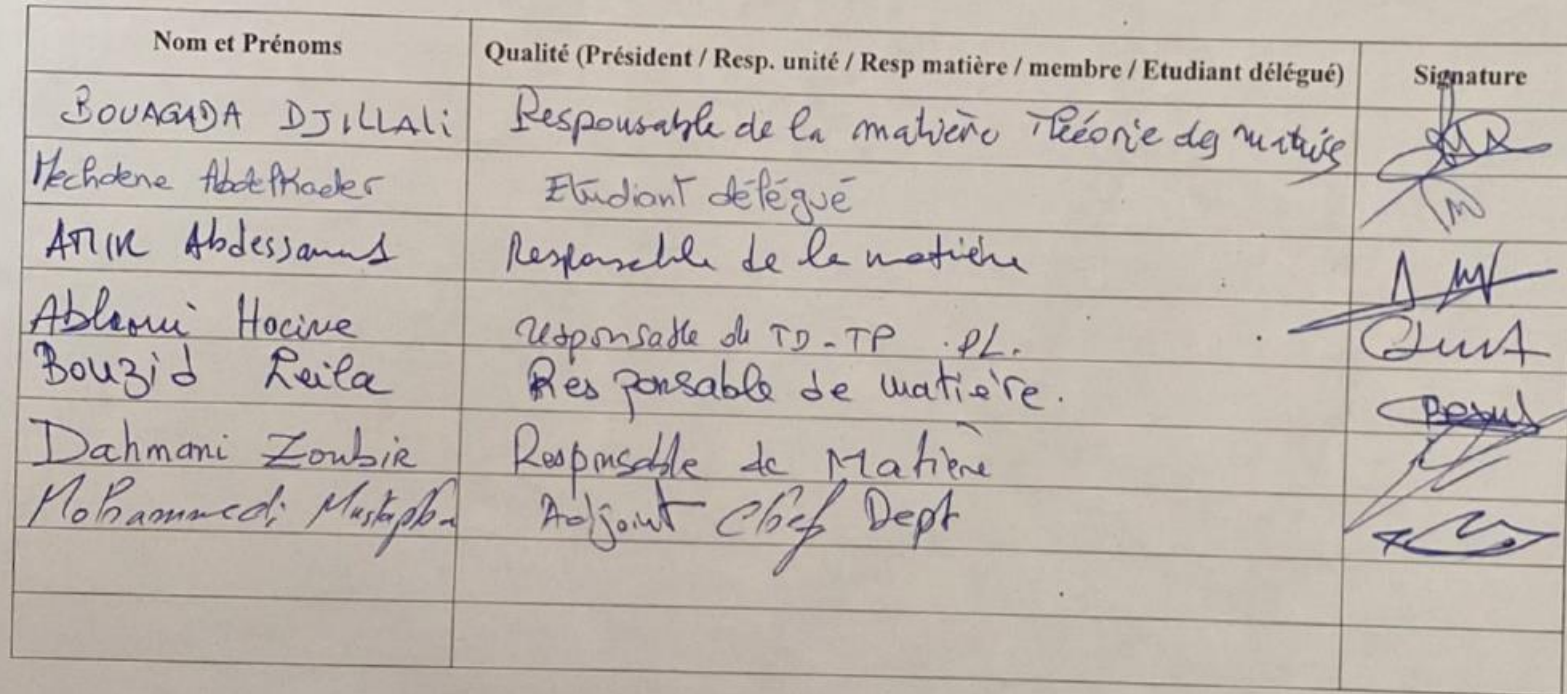 Nom et Prénoms Qualité (Président / Resp. unité / Resp matière / membre / Etudiant délégué) Signature
BOUAGADA DJILLALi Responsable de la matière Théorie des
Mechdene Abdelkader Etudiant délégué
Abdessamed Responsable de la matière
Hocine responsable de TD-TP .PL.
Bouzid Leila Responsable de matière.
Dahmani Zoubir Responsable de Matière
Mohammedi Mustapha Adjoint Chef Dept